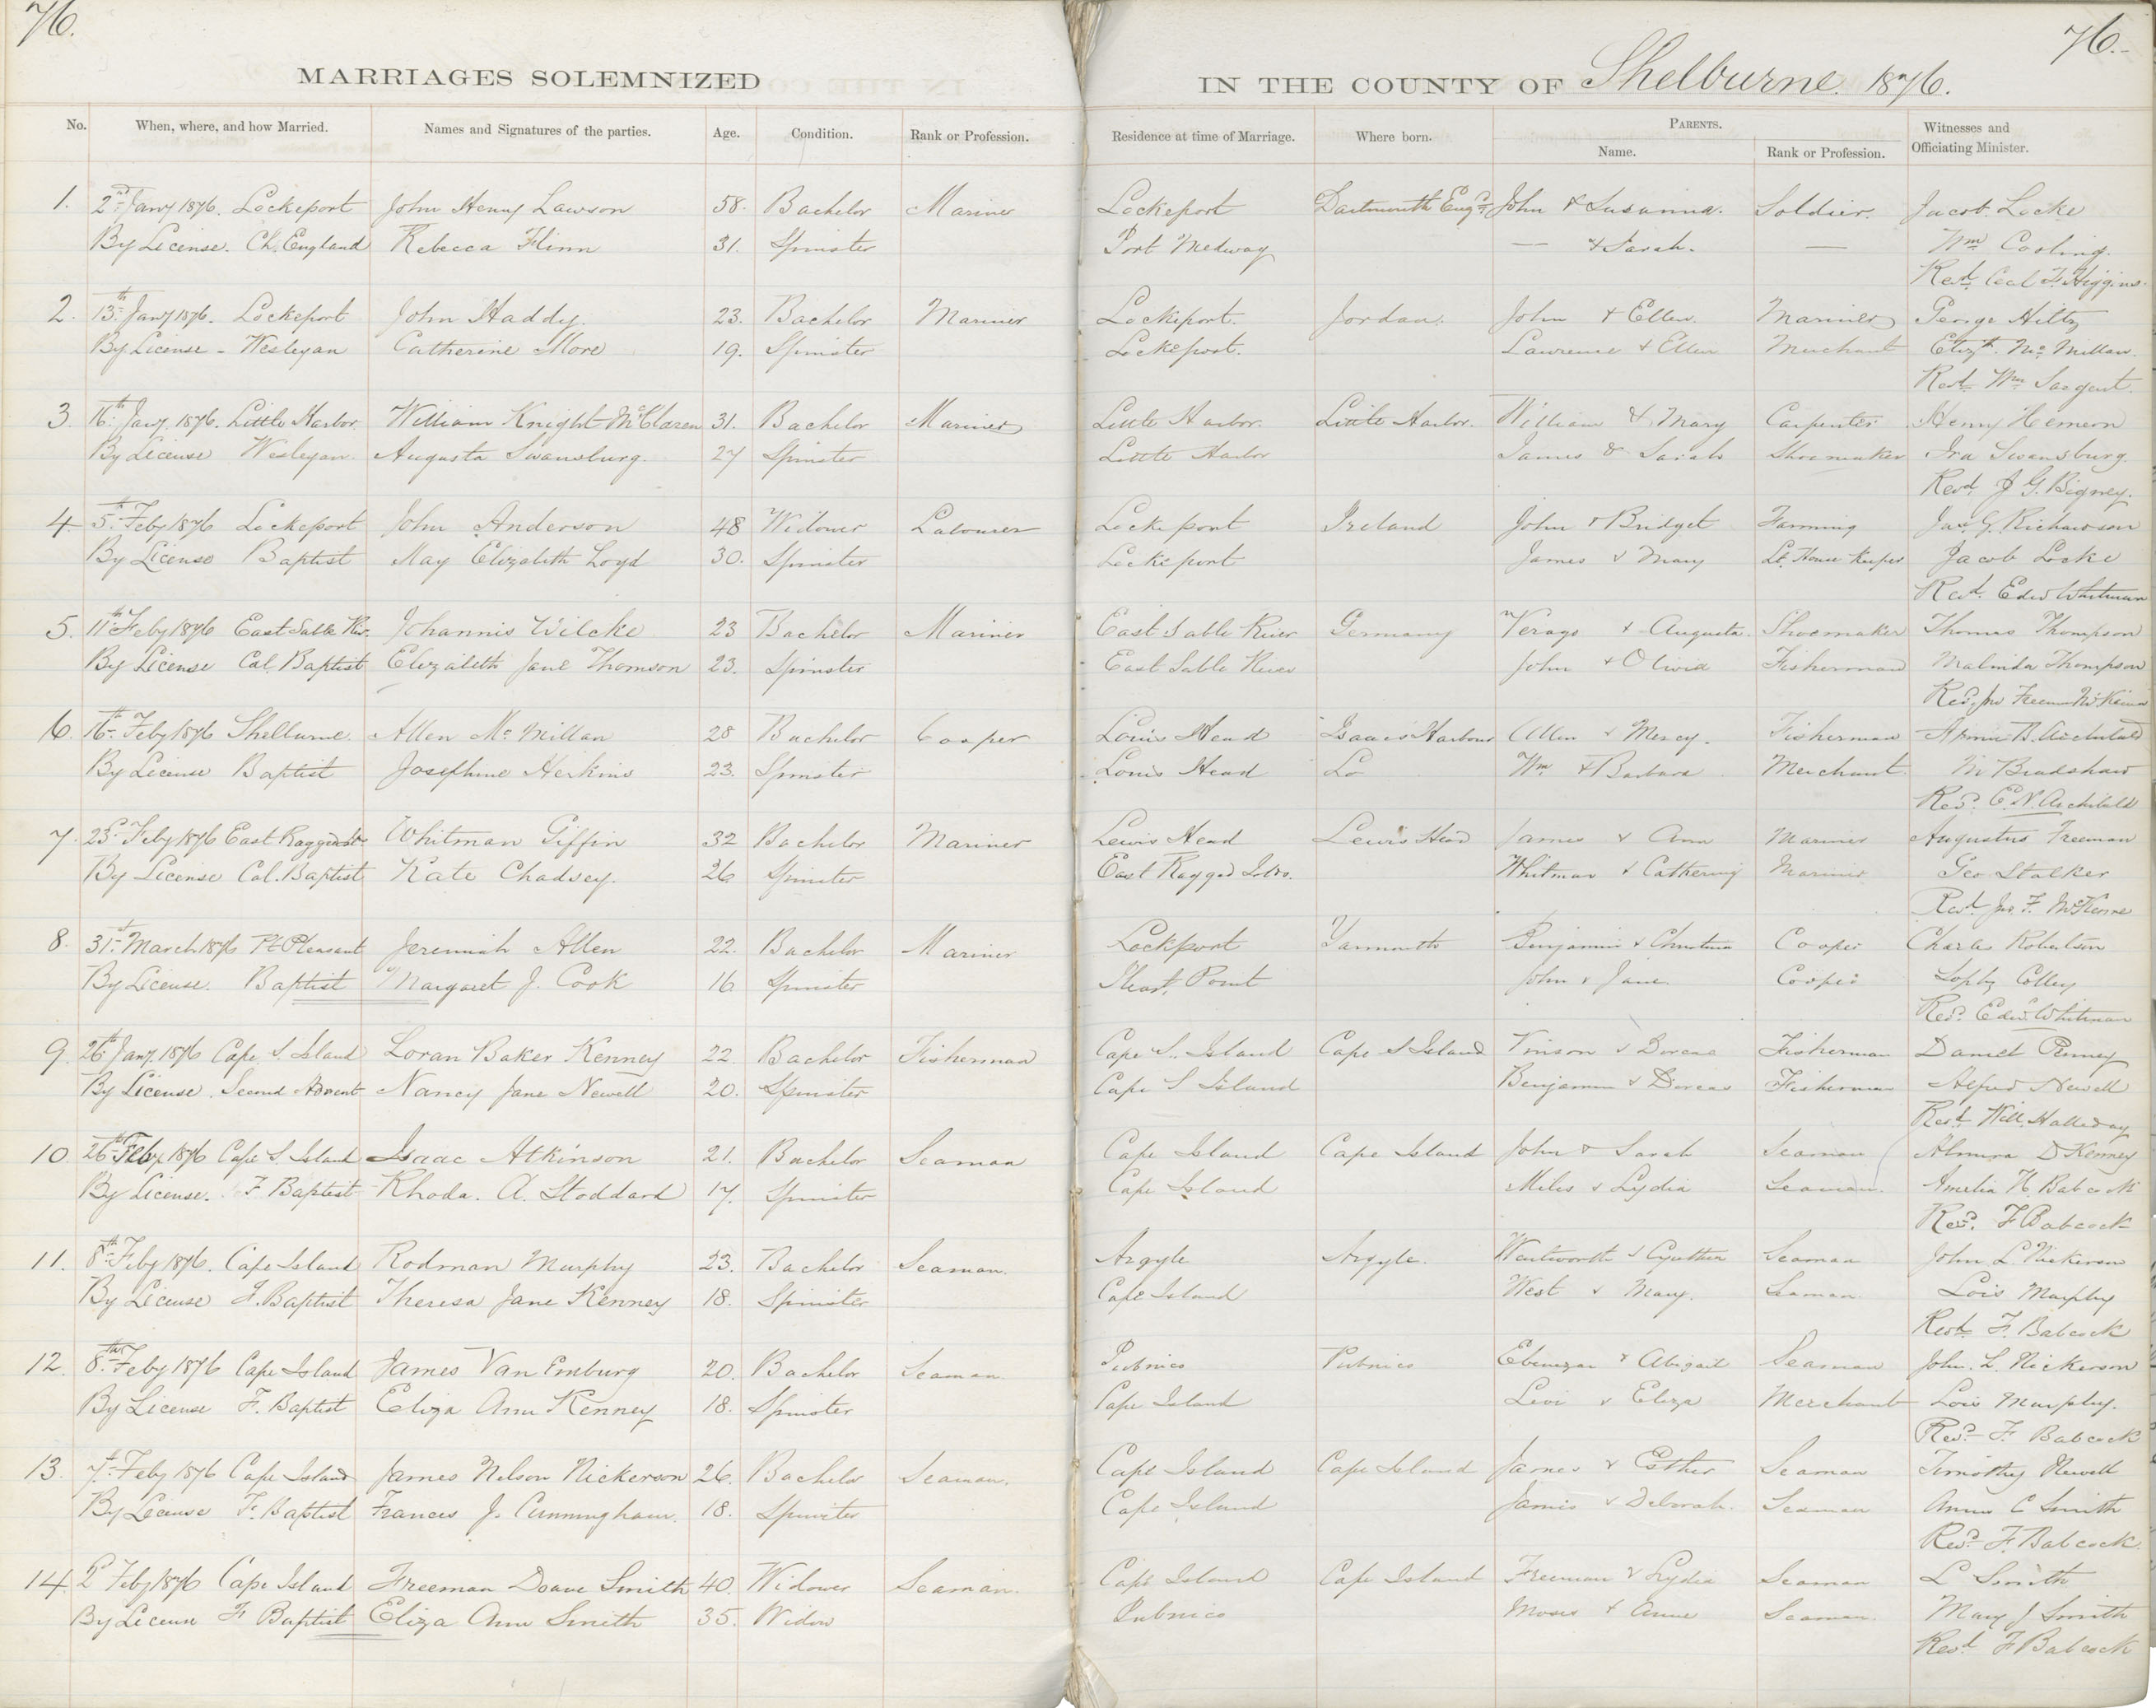 76.
76.
MARRIAGES SOLEMNIZED
IN THE COUNTY OF Shelburne. 1876.
No. When, where, and how Married. Names and Signatures of the parties. Age. Condition. Rank or Profession. Residence at time of Marriage. Where born. PARENTS. Name. Rank or Profession. Witnesses and Officiating Minister.
1. 2nd Jany 1876. Lockeport John Henry Lawson 58. Bachelor Mariner Lockeport Dartmouth Engd. John & Susanna. Soldier. Jacob Locke
By License. Ch. England Rebecca Flinn 31. Spinster Port Medway — & Sarah. — Wm
Revd.
2. 13th Jany 1876. Lockeport John Haddy. 23. Bachelor Mariner Lockeport. Jordan. John & Ellen. Mariner George Hiltz
By License - Wesleyan Catherine More 19. Spinster Lockeport. Lawrence & Ellen Merchant Elizth. Mc Millan.
Revd. Wm Sargent.
3. 16th Jany. 1876. Little Harbor. William Knight McClaren 31. Bachelor Mariner Little Harbor. Little Harbor. William & Mary Carpenter Henry Hemeon
By License Wesleyan. Augusta Swansburg. 27 Spinster Little Harbor James & Sarah Shoemaker Ira Swansburg.
Revd. J. G. Bigney.
4 5th Feby 1876 Lockeport John Anderson 48 Widower Labourer Lockeport Ireland John & Bridget Farming Jas. G. Richardson
By License Baptist May Elizabeth Loyd 30. Spinster Lockeport James & Mary Lt. House Keeper Jacob Locke
Revd. Edw Whitman
5. 11th Feby 1876 East Sable Riv. Johannis Wilcke 23 Bachelor Mariner East Sable River Germany & Augusta. Shoemaker Thomas Thompson
By License Cal. Baptist Elizabeth Jane Thomson 23. Spinster East Sable River John & Olivia Fisherman Malinda Thompson
Revd.
6. 16th Feby 1876 Shelburne. Allen Mc Millan 28 Bachelor Cooper Louis Head Isaacs Harbour Allen & Mercy. Fisherman
By License Baptist Josephine Herkins 23. Spinster Louis Head Do Wm & Barbara Merchant. M Bradshaw
Revd. E. N. Archibald
7. 23d Feby 1876 East Ragged Whitman Giffin 32 Bachelor Mariner Lewis Head Lewis Head James & Ann Mariner Augustus Freeman
By License Cal. Baptist Kate Chadsey. 26 Spinster East Ragged Whitman & Mariner Geo Stalker
Revd. Jno. F. McKenne
8. 31st March 1876 Pt Pleasant Jeremiah Allen 22. Bachelor Mariner Lockport Yarmouth Benjamin & Christina Cooper Charles Robertson
By License. Baptist Margaret J. Cook 16 Spinster Pleast. Point John & Jane Cooper Colley
Revd. Edw. Whitman
9. 26th Jany. 1876 Cape S. Island Loran Baker Kenney 22. Bachelor Fisherman Cape S. Island Cape S Island Vinson & Fisherman Daniel
By License. Second Advent Nancy Jane Newell 20. Spinster Cape S Island Benjamin & Dorcas Fisherman Alfred Newell
Revd. Will. Halleday
10 26th Feby 1876 Cape S. Island Isaac Atkinson 21. Bachelor Seaman Cape Island Cape Island John & Sarah Seaman Almira D Kenney
By License. F Baptist Rhoda. A. Stoddard 17. Spinster Cape Island Miles & Lydia Seaman. Amelia H. Babcock
Revd. F Babcock
11. 8th Feby 1876. Cape Island Rodman Murphy 23. Bachelor Seaman. Argyle Argyle. Wentworth & Cynthia Seaman John L Nickerson
By License F. Baptist Theresa Jane Kenney 18. Spinster Cape Island West & Mary. Seaman. Lois Murphy
Revd. F. Babcock
12. 8th Feby 1876 Cape Island James Van Emburg 20. Bachelor Seaman. Pubnico Pubnico Ebenezar & Abigail Seaman John. L. Nickerson
By License F. Baptist Eliza Ann Kenney 18. Spinster Cape Island Levi & Eliza Merchant Lois Murphy.
Revd. F. Babcock
13. 7th Feby 1876 Cape Island James Nelson Nickerson 26. Bachelor Seaman. Cape Island Cape Island James & Esther Seaman Timothy Newell
By License F. Baptist Frances J. Cunningham. 18. Spinster Cape Island James & Deborah. Seaman C Smith
Revd. F. Babcock.
14. 2d Feby 1876 Cape Island Freeman Doane Smith 40. Widower Seaman. Cape Island Cape Island Freeman & Lydia Seaman L Smith
By License F Baptist Eliza Ann Smith 35. Widow Pubnico Moses & Anne Seaman. Mary J Smith
Revd. F Babcock